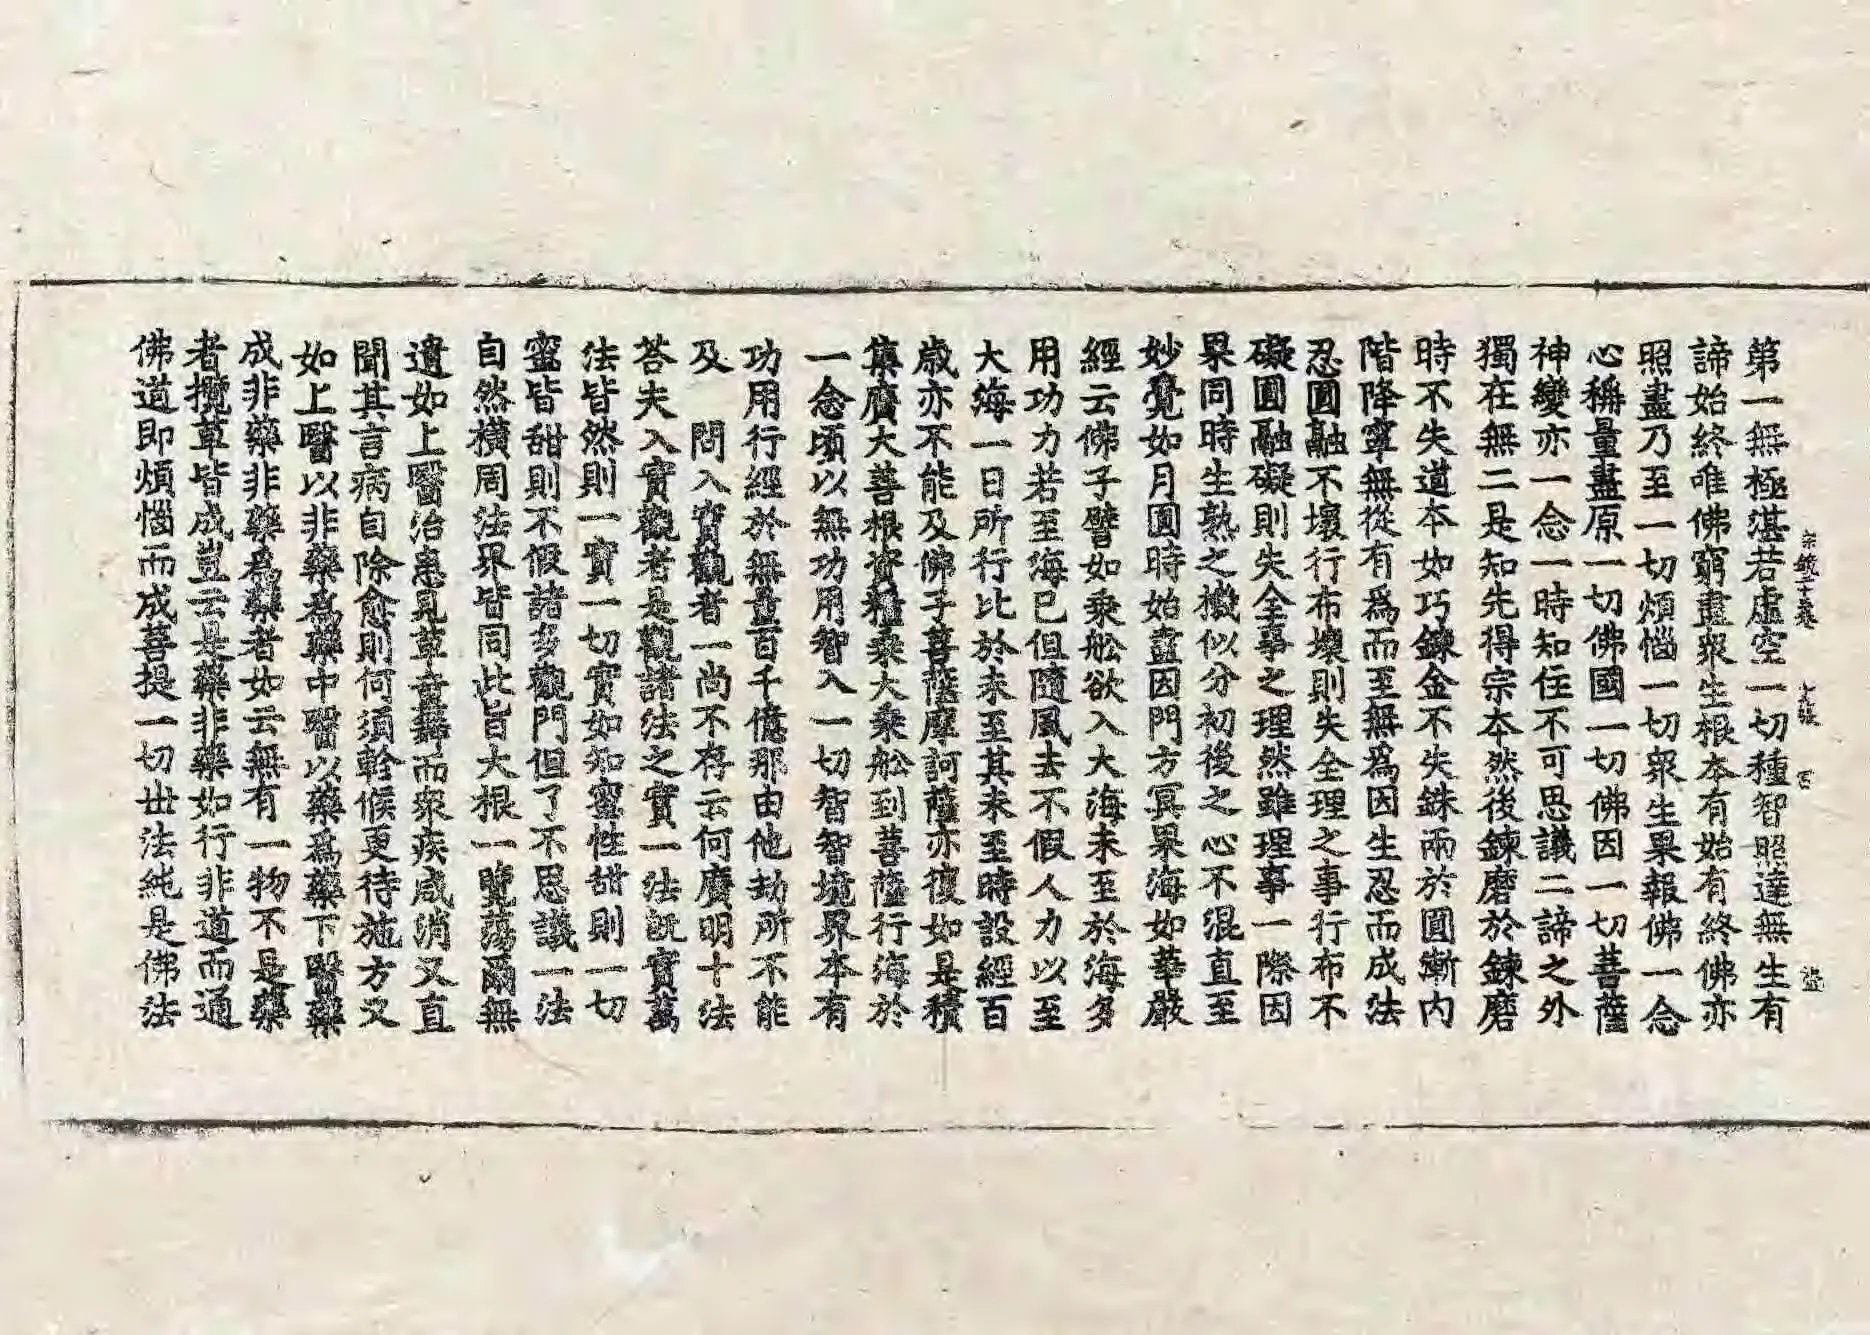 第一無極湛若虛空一切種智照達無生有
諦始終唯佛窮盡衆生根本有始有終佛亦
照盡乃至一切煩惱一切衆生果報佛一念
心稱量盡原一切佛國一切佛因一切菩薩
神變亦一念一時知住不可思議二諦之外
獨在無二是知先得宗本然後鍊磨於鍊磨
時不失道本如巧鍊金不失銖兩於圓漸內
階降寧無從有爲而至無爲因生忍而成法
忍圓融不壞行布壞則失全理之事行布不
礙圓融礙則失全事之理然雖理事一際因
果同時生熟之攃似分初後之心不混直至
妙覺如月圓時始盡因門方冥果海如華嚴
經云佛子譬如乘舩欲入大海未至於海多
用功力若至海已但隨風去不假人力以至
大海一日所行比於未至其未至時設經百
歲亦不能及佛子菩薩摩訶薩亦復如是積
集廣大善根資糧乘大乘舩到菩薩行海於
一念頃以無功用智入一切智智境界本有
功用行經於無量百千億那由他劫所不能
及　問入實觀者一尚不存云何廣明十法
荅夫入實觀者是觀諸法之實一法旣實萬
法皆然則一實一切實如知蜜性甜則一切
蜜皆甜則不假諸多觀門但了不思議一法
自然橫周法界皆同此旨大根一覽蕩爾無
遺如上醫治患見草童舞而衆疾咸消又直
聞其言病自除愈則何須軫候更待施方又
如上醫以非藥爲藥中醫以藥爲藥下醫藥
成非藥非藥爲藥者如云無有一物不是藥
者攬草皆成豈云是藥非藥如行非道而通
佛道即煩惱而成菩提一切世法純是佛法